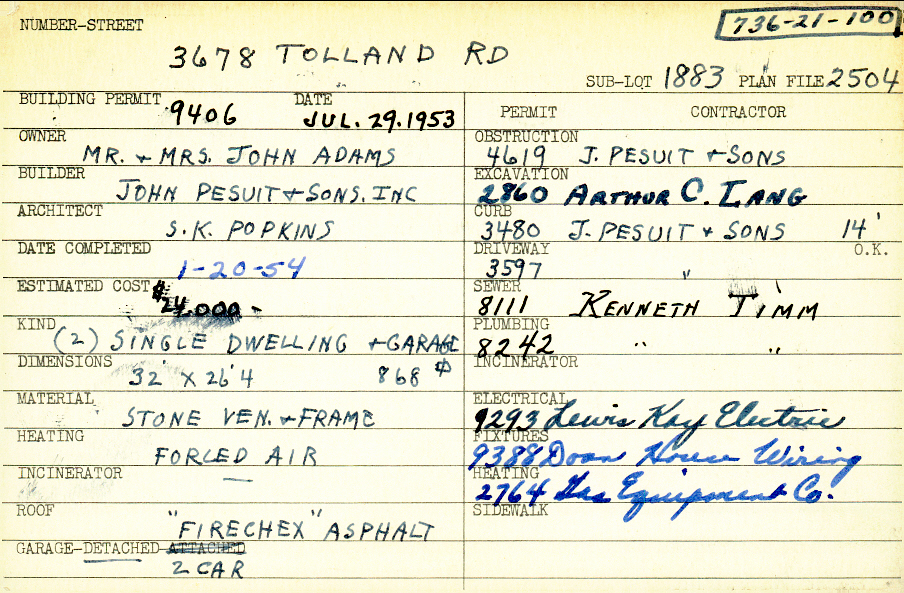 736-21-100
NUMBER-STREET
3678 TOLLAND RD
SUB-LOT 1883 PLAN FILE 2504
BUILDING PERMIT 9406 DATE JUL. 29. 1953
OWNER
MR. + MRS. JOHN ADAMS
BUILDER
JOHN PESUIT + SONS. INC
ARCHITECT
S.K. POPKINS
DATE COMPLETED
1-20-54
ESTIMATED COST $24,000 -
KIND
(2) SINGLE DWELLING + GARAGE
DIMENSIONS
32' X 26' 4 868 ⌀
MATERIAL
STONE VEN. + FRAME
HEATING
FORCED AIR
INCINERATOR
—
ROOF
"FIRECHEX" ASPHALT
GARAGE-DETACHED ATTACHED
2 CAR
PERMIT CONTRACTOR
OBSTRUCTION
4619 J. PESUIT + SONS
EXCAVATION
2860 ARTHUR C. LANG
CURB
3480 J. PESUIT + SONS 14'
DRIVEWAY O.K.
3597 "
SEWER
8111 KENNETH TIMM
PLUMBING
8242 " "
INCINERATOR
ELECTRICAL
9293 Lewis Kay Electric
FIXTURES
9388 Doan House Wiring
HEATING
2764 Gas Equipment Co.
SIDEWALK